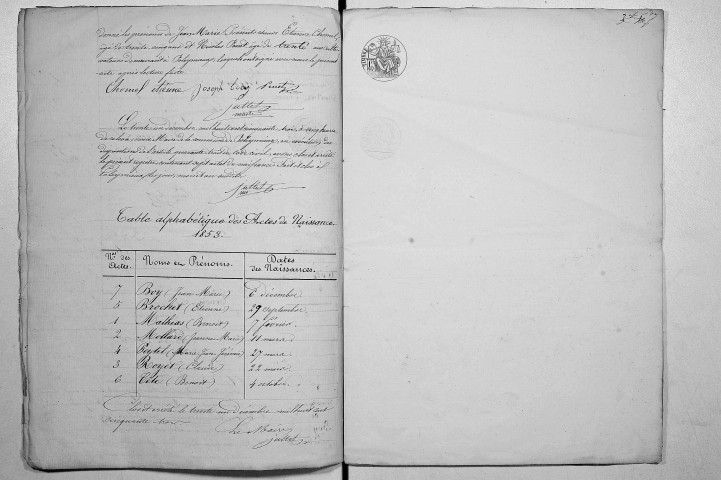 donné les prénoms de Jean Marie Présents sieurs Etienne Chomel,
âgé de trente cinq ans et Nicolas Pinet âgé de trente ans cultivateurs
demeurants à Poleymieux lesquels ont signé avec nous le présent
acte après lecture faite
Chomel etienne Joseph Pinet
Jullet
maire
Le trente un décembre mil huit cent cinquante trois, à cinq heures
du soir, Nous Maire de la commune de Poleymieux, en exécution des
dispositions de l'article quarante trois du code civil, avons clos et arrêté
le présent registre, contenant sept actes de naissance. Fait et clos à
Poleymieux les jour, mois et an susdits.
Jullet
Table alphabétique des Actes de Naissance
1853.
Nos des Actes. Noms et Prénoms. Dates des Naissances.
7 Boy (Jean Marie) 6 décembre
5 Brochet (Etienne) 29 septembre
1 Mathias (Benoît) 7 février
2 Mollard (Jeanne Marie) 11 mars
4 (Marie Jean Jérôme) 27 mars
3 Royet (Claude) 22 mars
6 (Benoît) 4 octobre
Clos et arrêté le trente un décembre mil huit cent
cinquante trois
Le Maire
Jullet